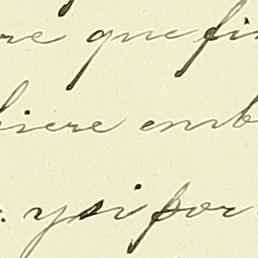 re que fi
hiere emb
y si por